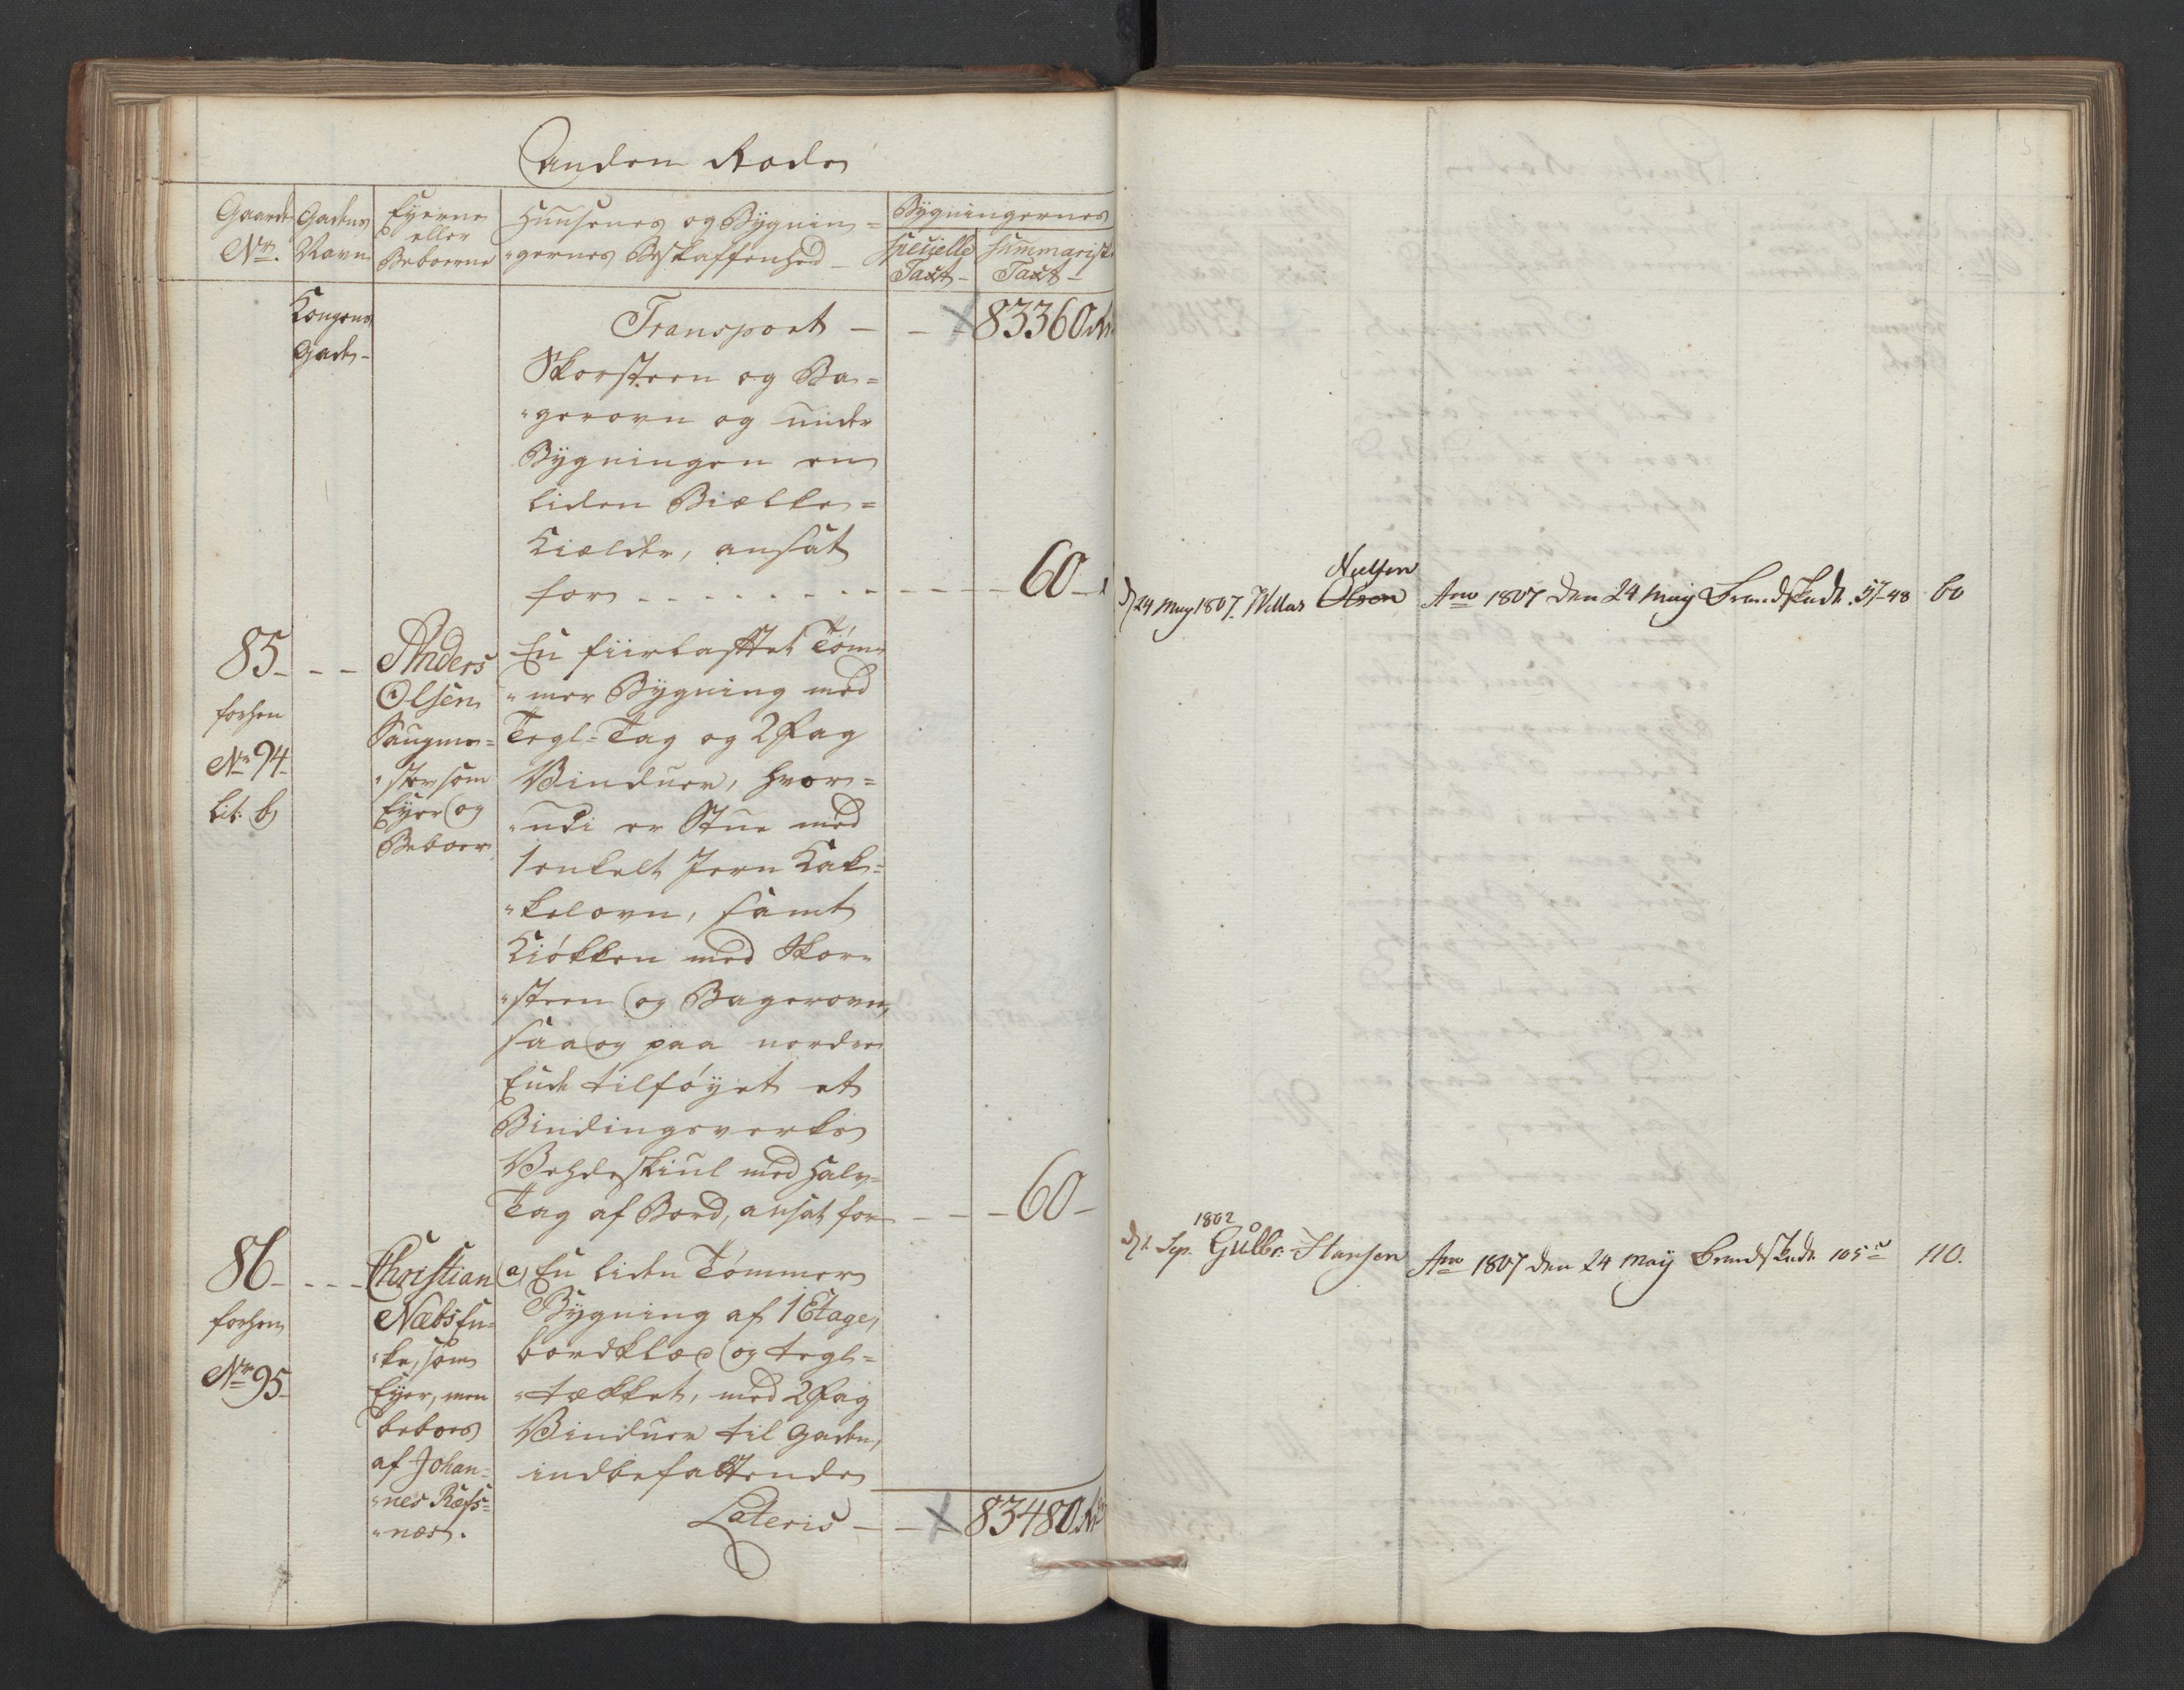 Anden Rode
Gaards No.
Gadens Navn
Eyerne eller Beboerne
Huusenes og Bygnin=
"gernes Beskaffenhed
Bygningernes
specielle Taxt
summariske Taxt
Kongens
Gade
Transport — 83360 Rd
Skorsteen og Ba=
"gerovn og under
Bygningen en
liden Bielke=
Kielder, ansat
for 60
85
forhen
No 94
Lit: b
Anders
Olsen
Saugme=
"ster som
Eyer og
Beboer
En fiirlaftet Töm=
"mer Bygning med
Tegl=Tag og 2 Fag
Vinduer, hvor=
"udi er Stue med
1 enkelt Jern Kak=
"kelovn, samt
Kiökken med Skor=
"steen og Bagerovn,
saa og paa nordre
Ende tilföyet et
Bindingsverks
Vehdeskiul med halv=
Tag af Bord, ansat for 60
86
forhen
No 95
Christian
Næbs En=
"ke, som
Eyer, men
beboes
af Johan=
"nes Ræfs=
"næs.
a) En liden Tömmer
Bygning af 1 Etage,
bordklæd og tegl=
"tækket, med 2 Fag
Vinduer til Gaden,
indbefattende
Lateris — 83480 Rd
Nielsen
d 24 May 1807. Olsen Ano 1807 den 24 May Brandskade. 57-48 60
1802
d 1. Sep. Gulbr. Hansen Ano 1807 den 24 May Brandskade 105 110.